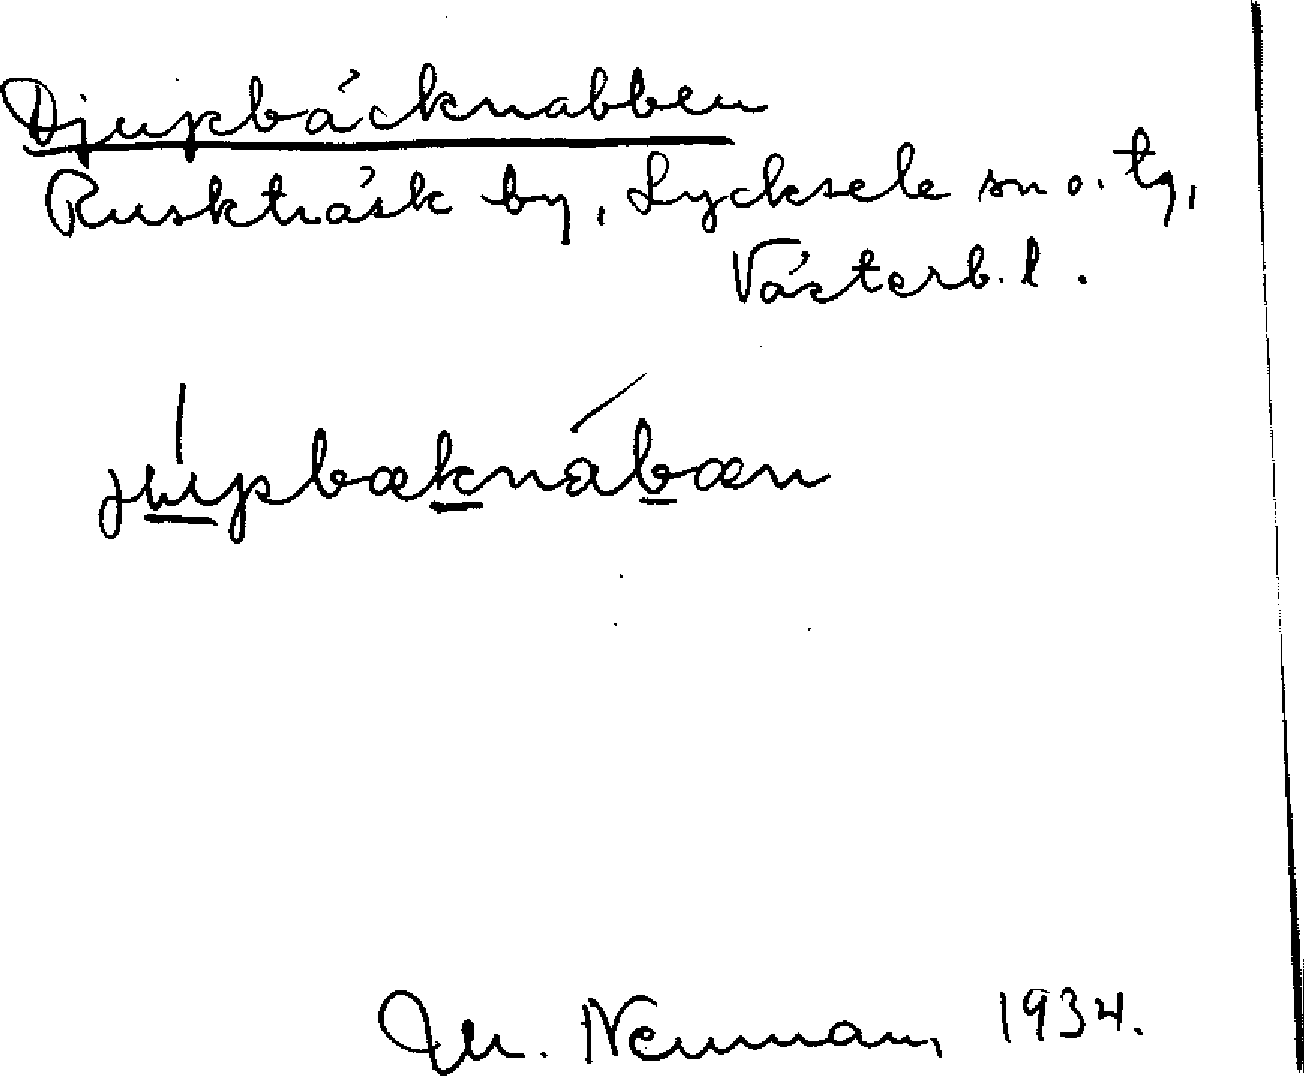 Djupbäcknabben
Ruskträsk by, Lycksele sn o. tg,
Västerb. l.
jupbæknábæn
M. Neuman, 1934.